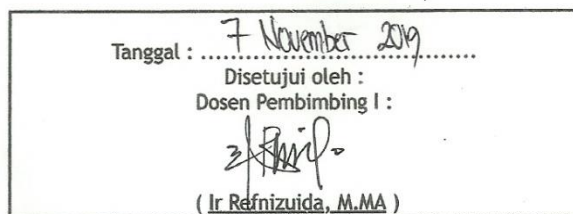 Tanggal : 7 November 2019
Disetujui oleh :
Dosen Pembimbing I :
( Ir Refnizuida, M.MA )